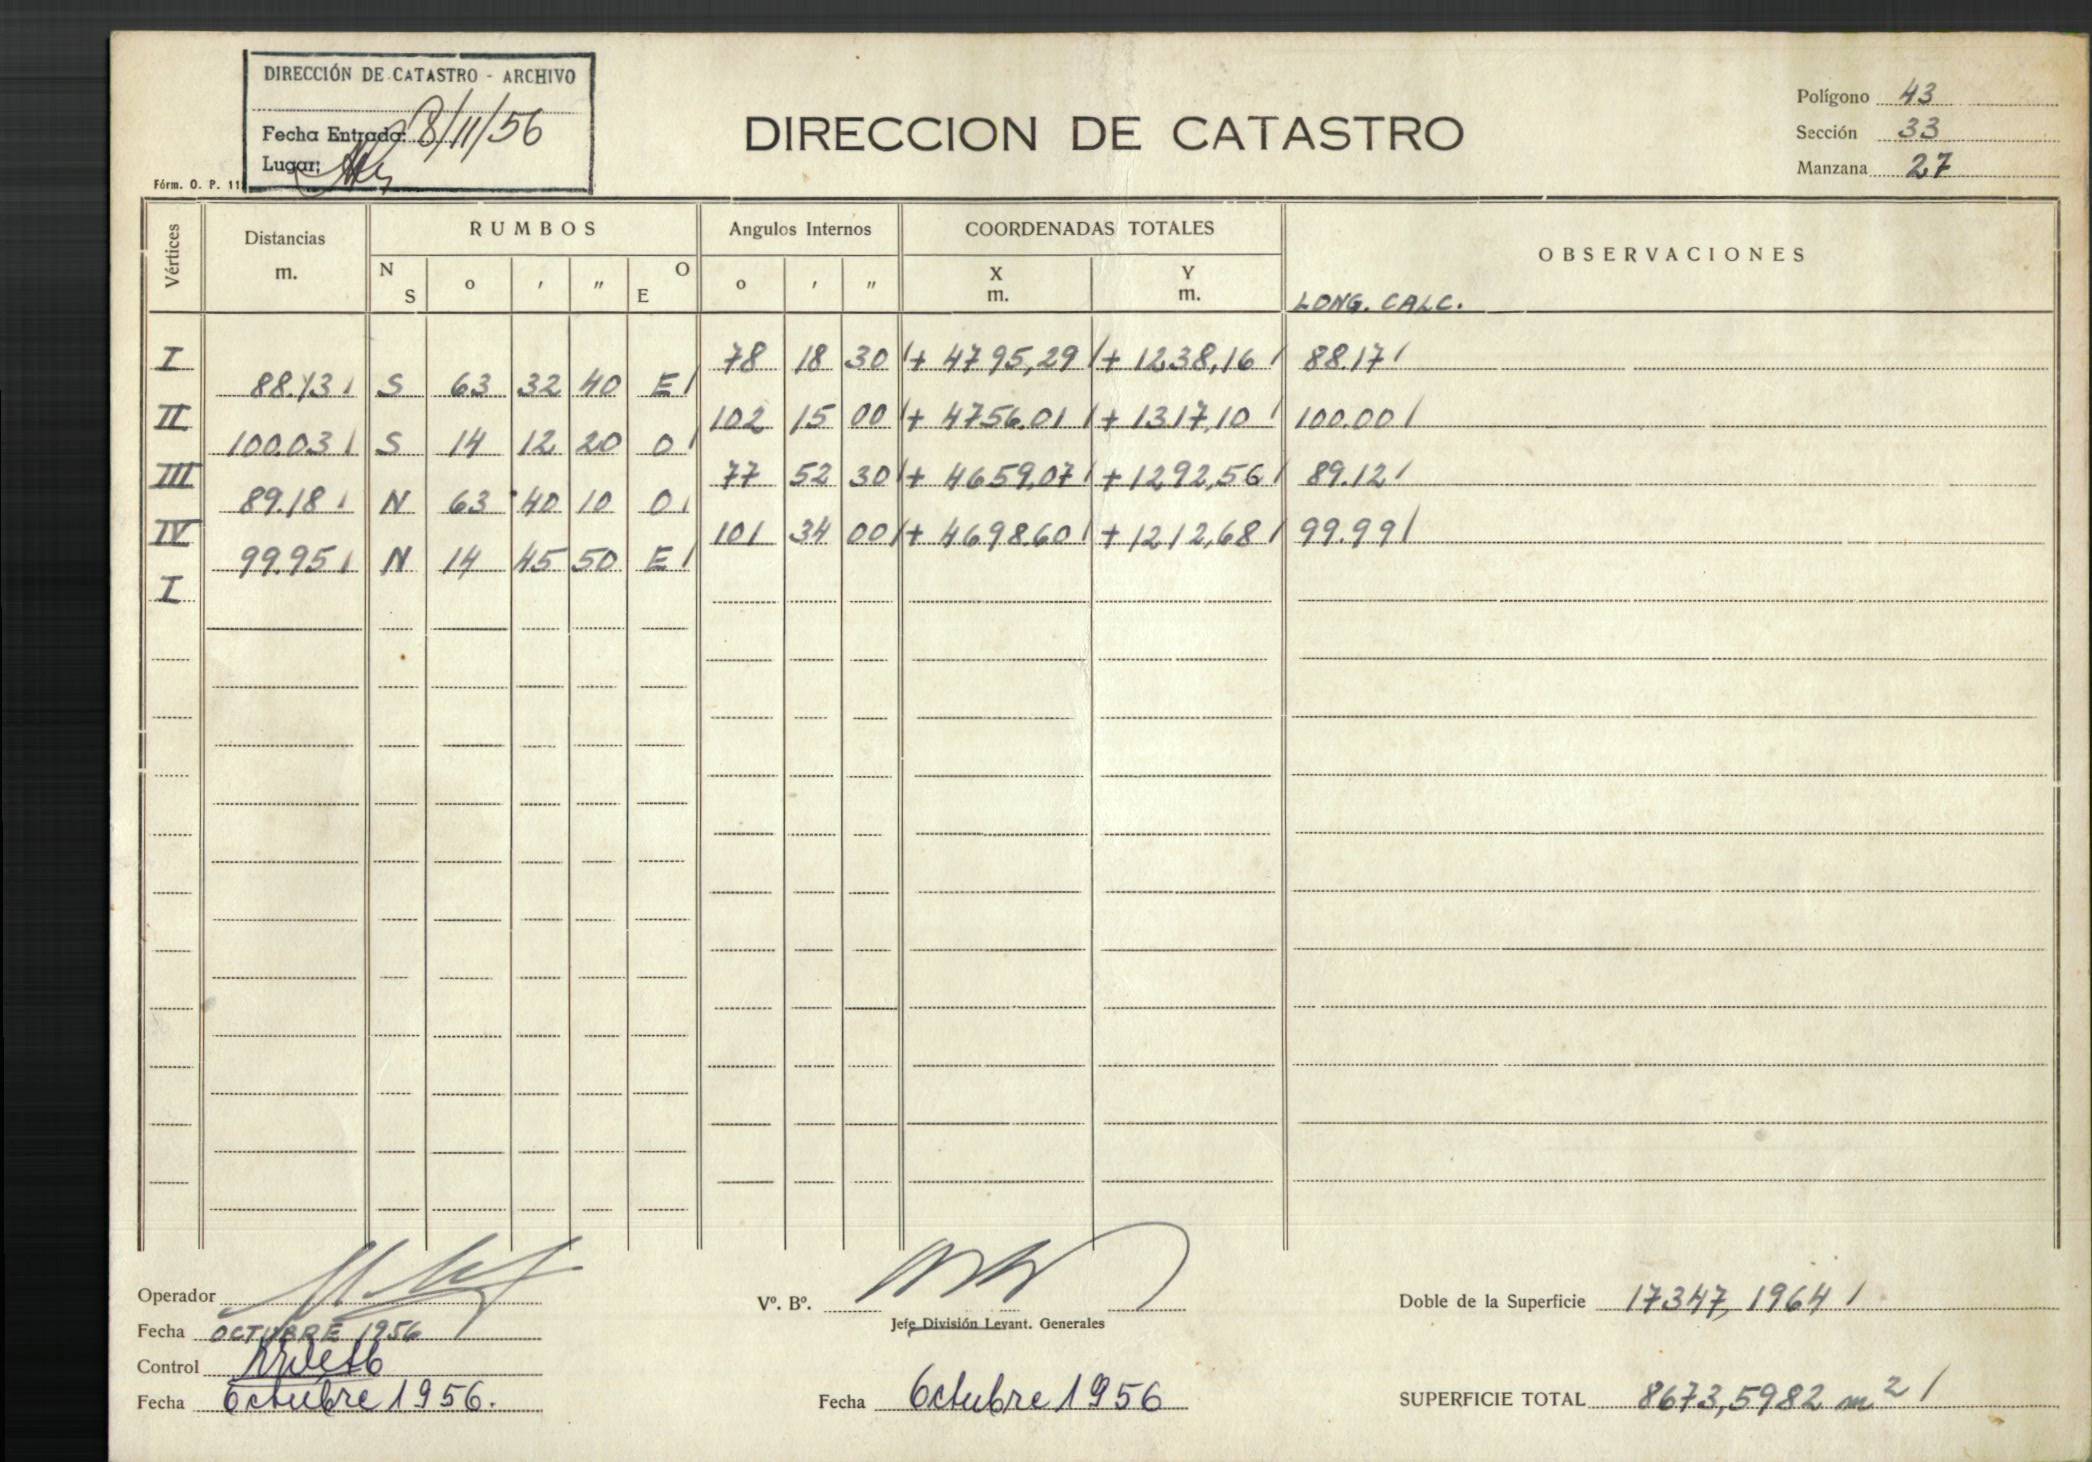 DIRECCIÓN DE CATASTRO - ARCHIVO
Fecha Entrada: 8/11/56
Lugar:
Fórm. O. P. 11
DIRECCION DE CATASTRO
Polígono 43
Sección 33
Manzana 27
Vértices Distancias m. RUMBOS Angulos Internos COORDENADAS TOTALES OBSERVACIONES
N S o ' " O E o ' " X m. Y m. LONG. CALC.
I 78 18 30 + 4795,29 + 1238,16 88.17
88.13 S 63 32 40 E
II 102 15 00 + 4756.01 + 1317,10 100.00
100.03 S 14 12 20 O
III 77 52 30 + 4659,07 + 1292,56 89.12
89.18 N 63 40 10 O
IV 101 34 00 + 4698.60 + 1212,68 99.99
99.95 N 14 45 50 E
I
Operador
Fecha OCTUBRE 1956
Control
Fecha Octubre 1956.
Vº. Bº.
Jefe División Levant. Generales
Fecha Octubre 1956
Doble de la Superficie 17347,1964
SUPERFICIE TOTAL 8673,5982 m2